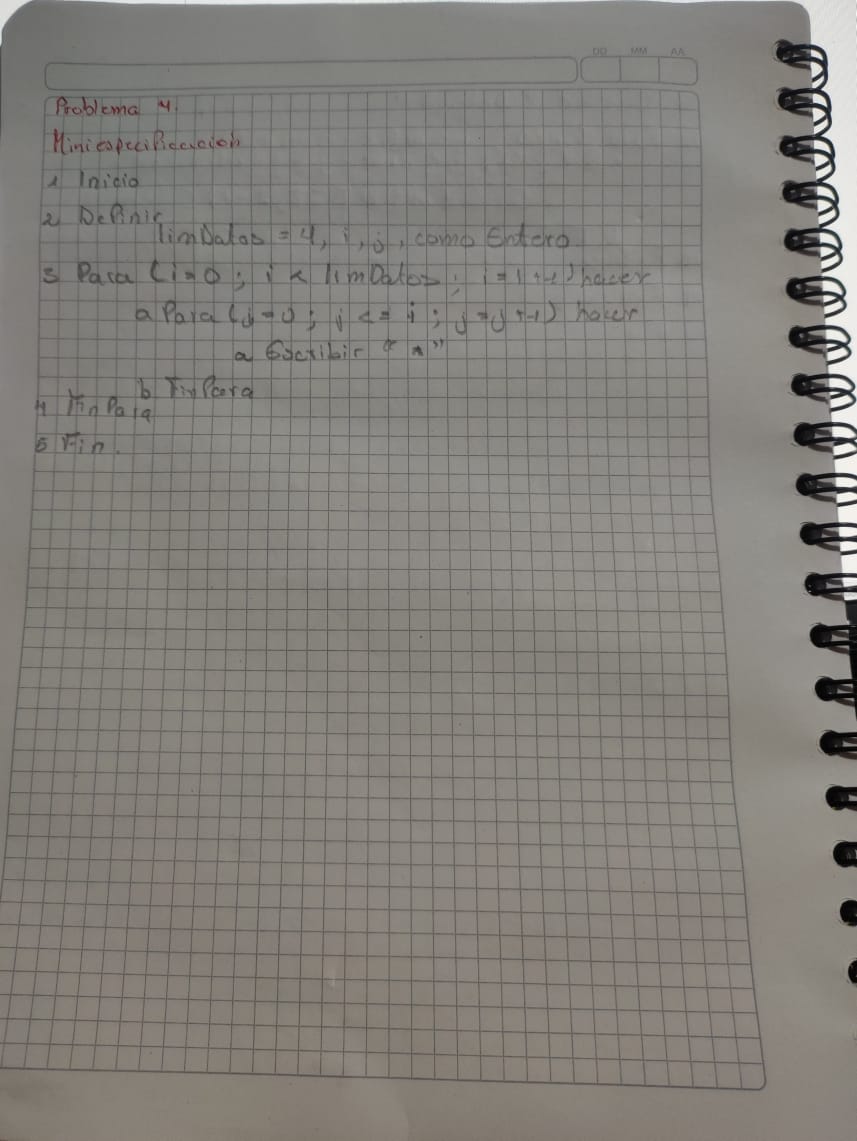 DD MM AA
Problema 4.
Miniespecificacion
1 Inicio
2 Definir
limDatos = 4, i, j, como Entero
3 Para (i=0; i < limDatos; i=i+1) hacer
a Para (j=0; j <= i; j=j+1) hacer
a Escribir "*"
b FinPara
4 FinPara
5 Fin.